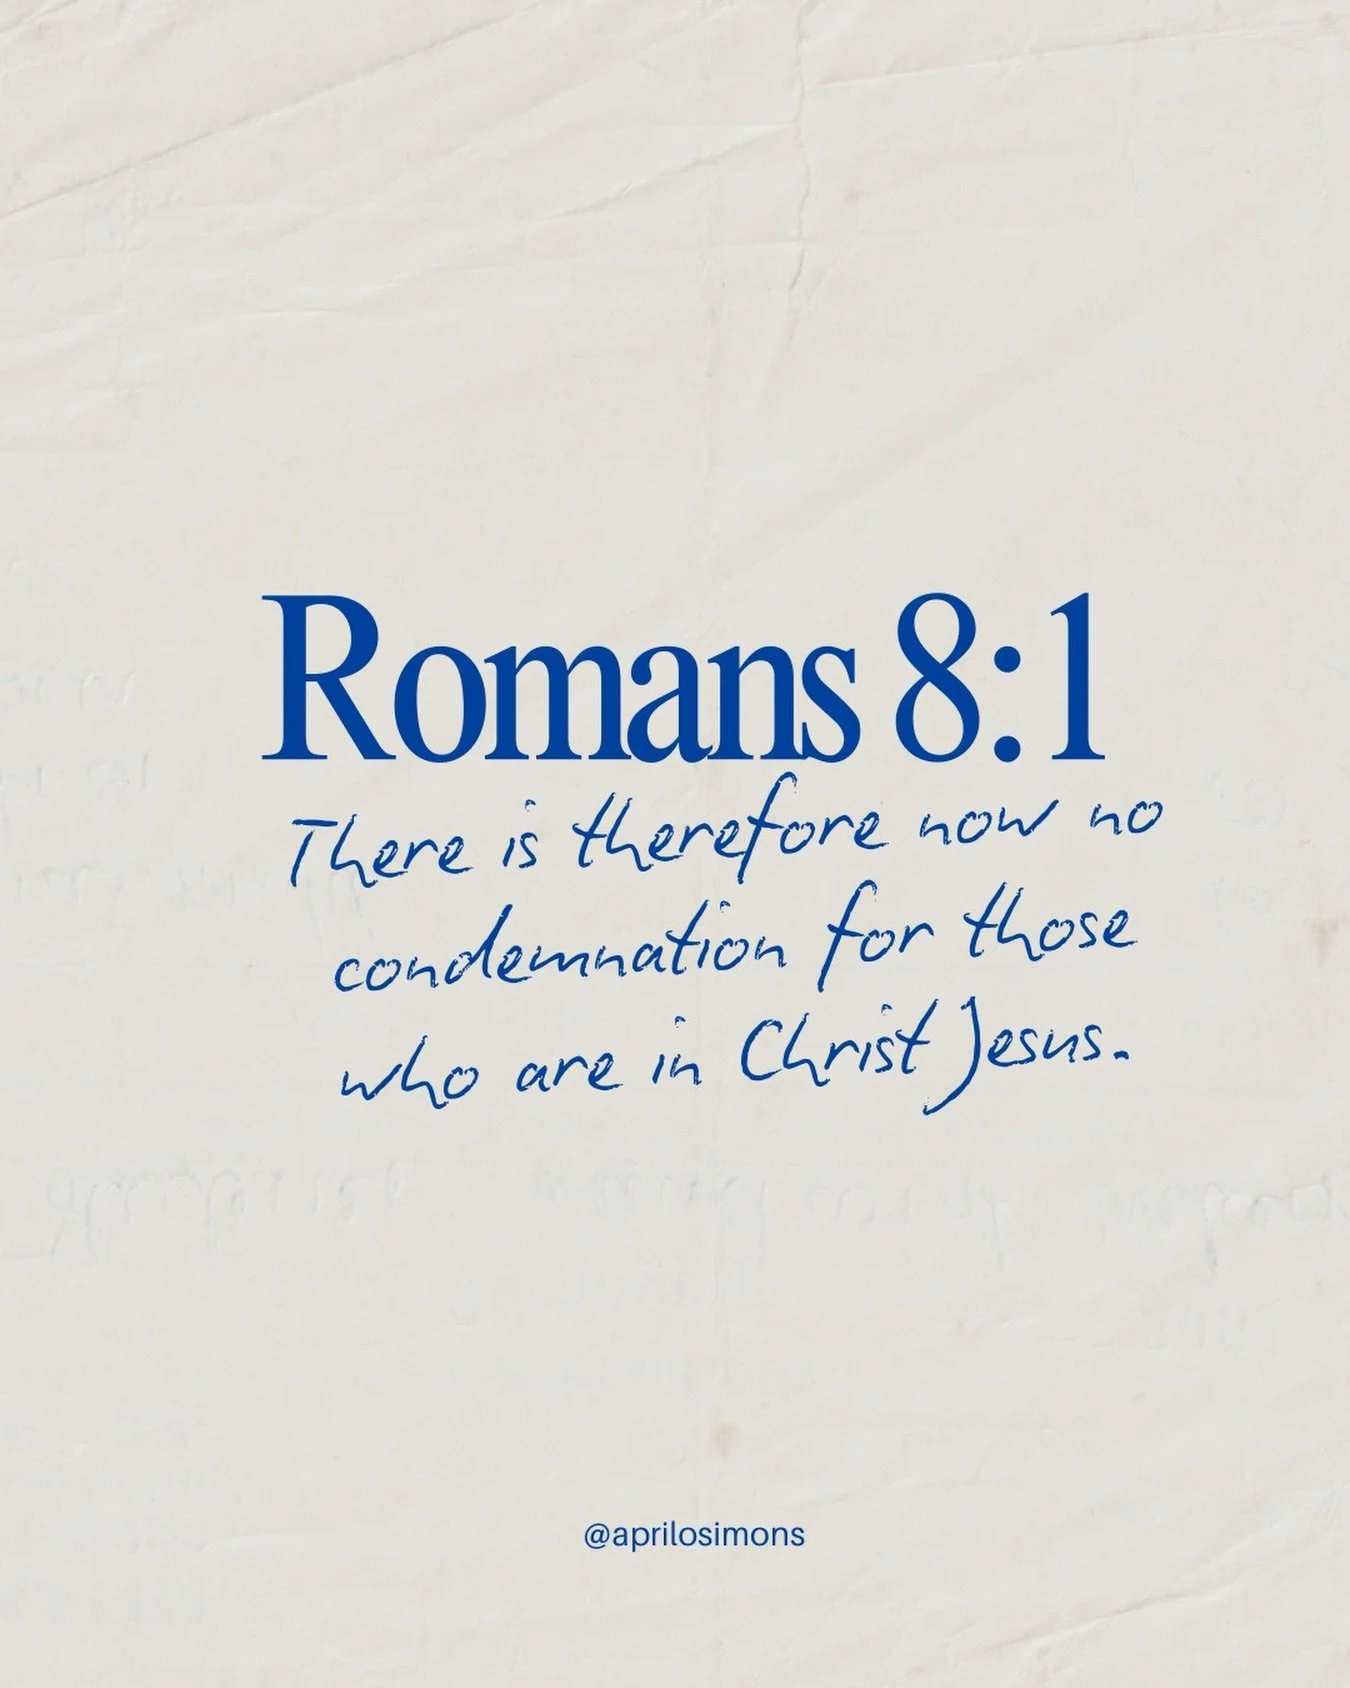 Romans 8:1
There is therefore now no
condemnation for those
who are in Christ Jesus.
@aprilosimons